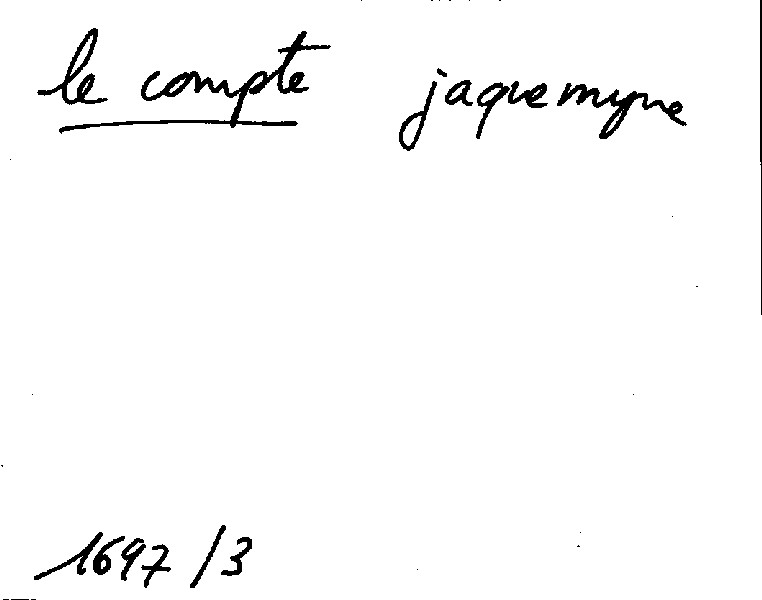 le compte jaquemyne
1697/3